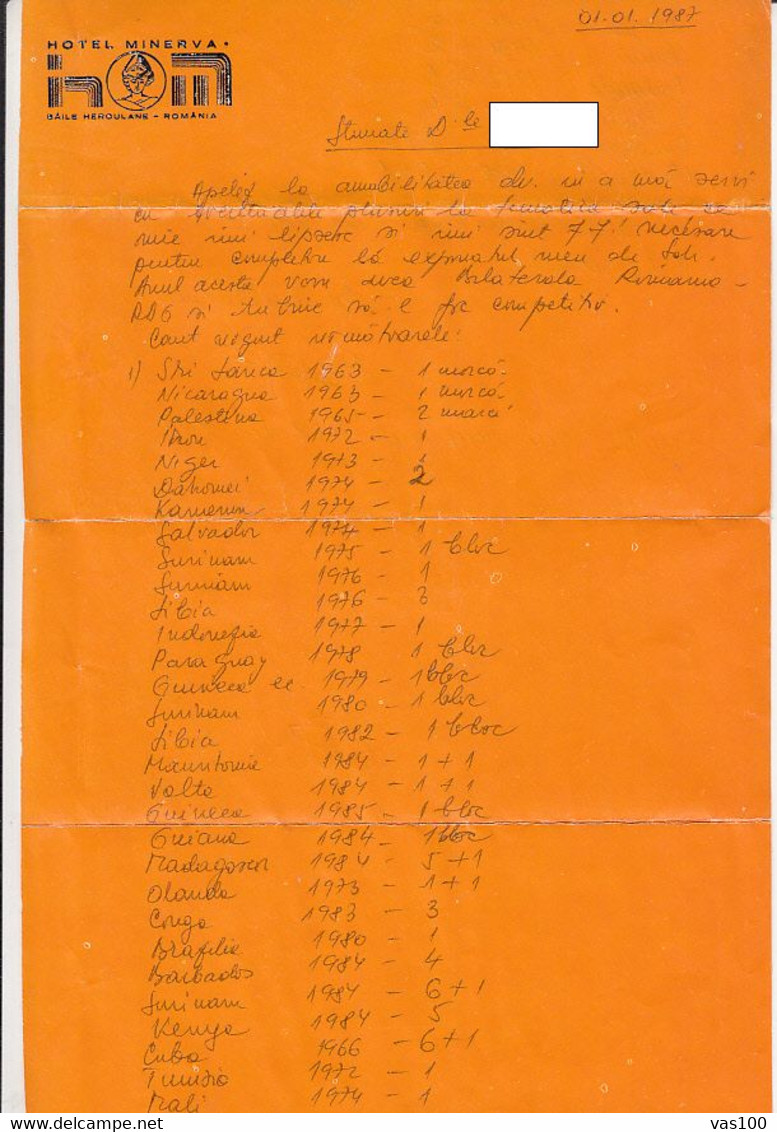 01.01.1987
HOTEL MINERVA
hom
BĂILE HERCULANE - ROMÂNIA
Stimate D-le
Apelez la amabilitatea dv. de a mă servi
cu plusuri la tematica
mie îmi lipsesc și îmi sînt necesare
pentru completare la exponatul meu de
Anul acesta vom avea Bilaterala România -
RDG și trebuie să-l fac competitiv.
Caut urgent următoarele:
1) Sri Lanca 1963 - 1 marcă
Nicaragua 1963 - 1 marcă
Palestina 1965 - 2 marcă
Iran 1972 - 1
Niger 1973 - 1
Dahomei 1974 - 2
Kamerun 1974 - 1
Salvador 1974 - 1
Surinam 1975 - 1 bloc
Surinam 1976 - 1
Libia 1976 - 3
Indonezia 1977 - 1
Paraguay 1978 1 bloc
Guineea ec. 1979 - 1 bloc
Surinam 1980 - 1 bloc
Libia 1982 - 1 bloc
Mauritanie 1984 - 1+1
Volta 1984 - 1+1
Guineea 1985 - 1 bloc
Guiana 1984 - 1 bloc
Madagascar 1984 - 5+1
Olanda 1973 - 1+1
Congo 1983 - 3
Brazilia 1980 - 1
Barbados 1984 - 4
Surinam 1984 - 6+1
Kenya 1984 - 5
Cuba 1966 - 6+1
Tunisia 1972 - 1
Mali 1974 - 1
vas100